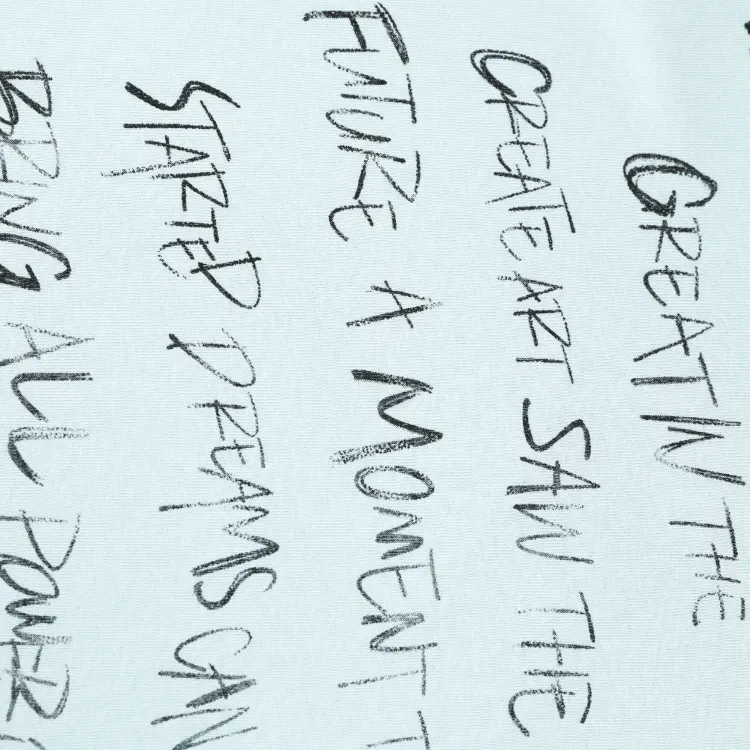 GREAT IN THE
CREATE ART SAW THE
FUTURE A MOMENT T
STARTED DREAMS CAN
BRING ALL POWER